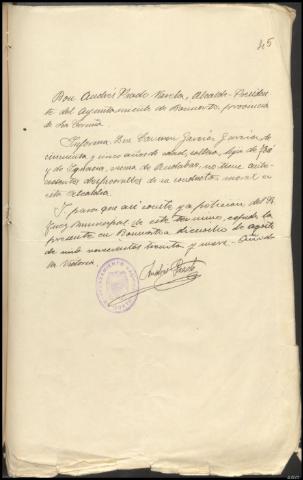 45
Don Andrés Prado Varela, Alcalde-Presidente
del Ayuntamiento de Boimorto, provincia
de La Coruña
Informa: Que Carmen García García, de
cincuenta y cinco años de edad, soltera, hija de
y de Ignacia, vecina de Andabao, no tiene ante-
cedentes desfavorables de la conducta moral en
esta Alcaldía
Y para que así conste y a petición del Sr
Juez municipal de este término, expido la
presente en Boimorto a dieciocho de agosto
de mil novecientos treinta y nueve. Año de
la Victoria
Andrés Prado